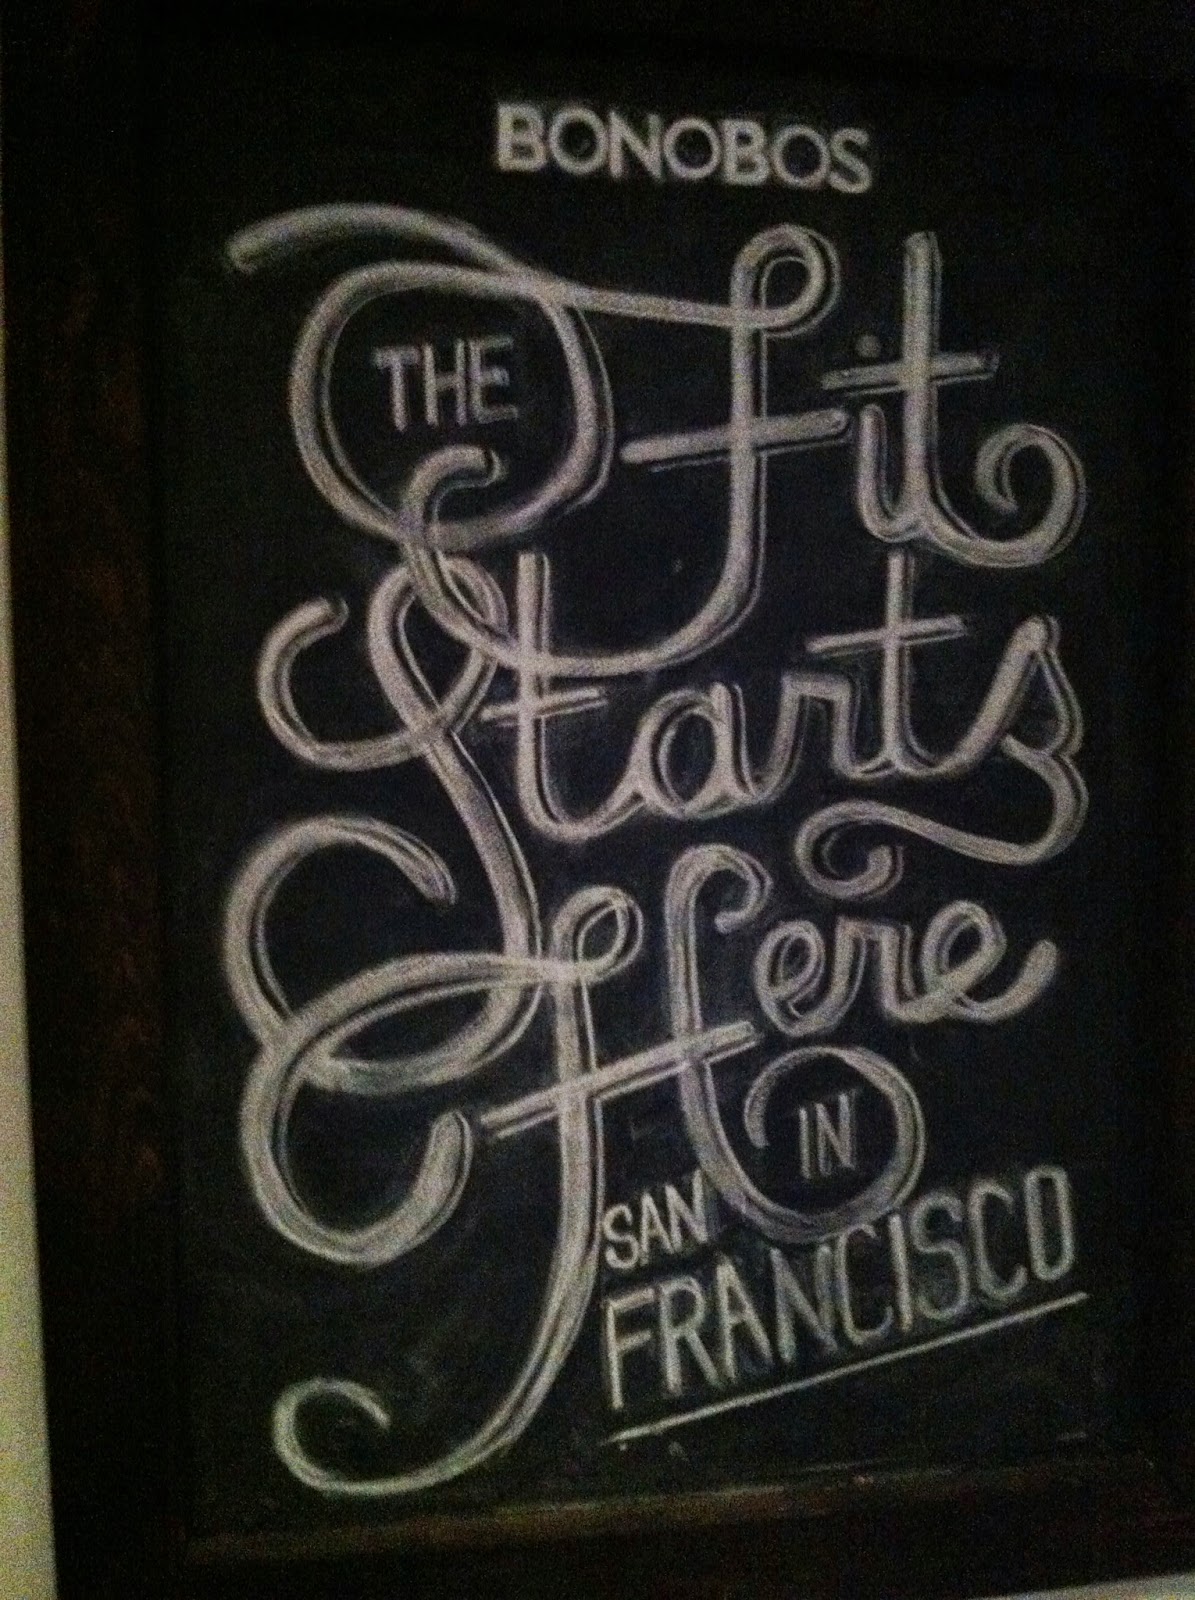 BONOBOS
THE Fit
Starts
Here
IN
SAN
FRANCISCO